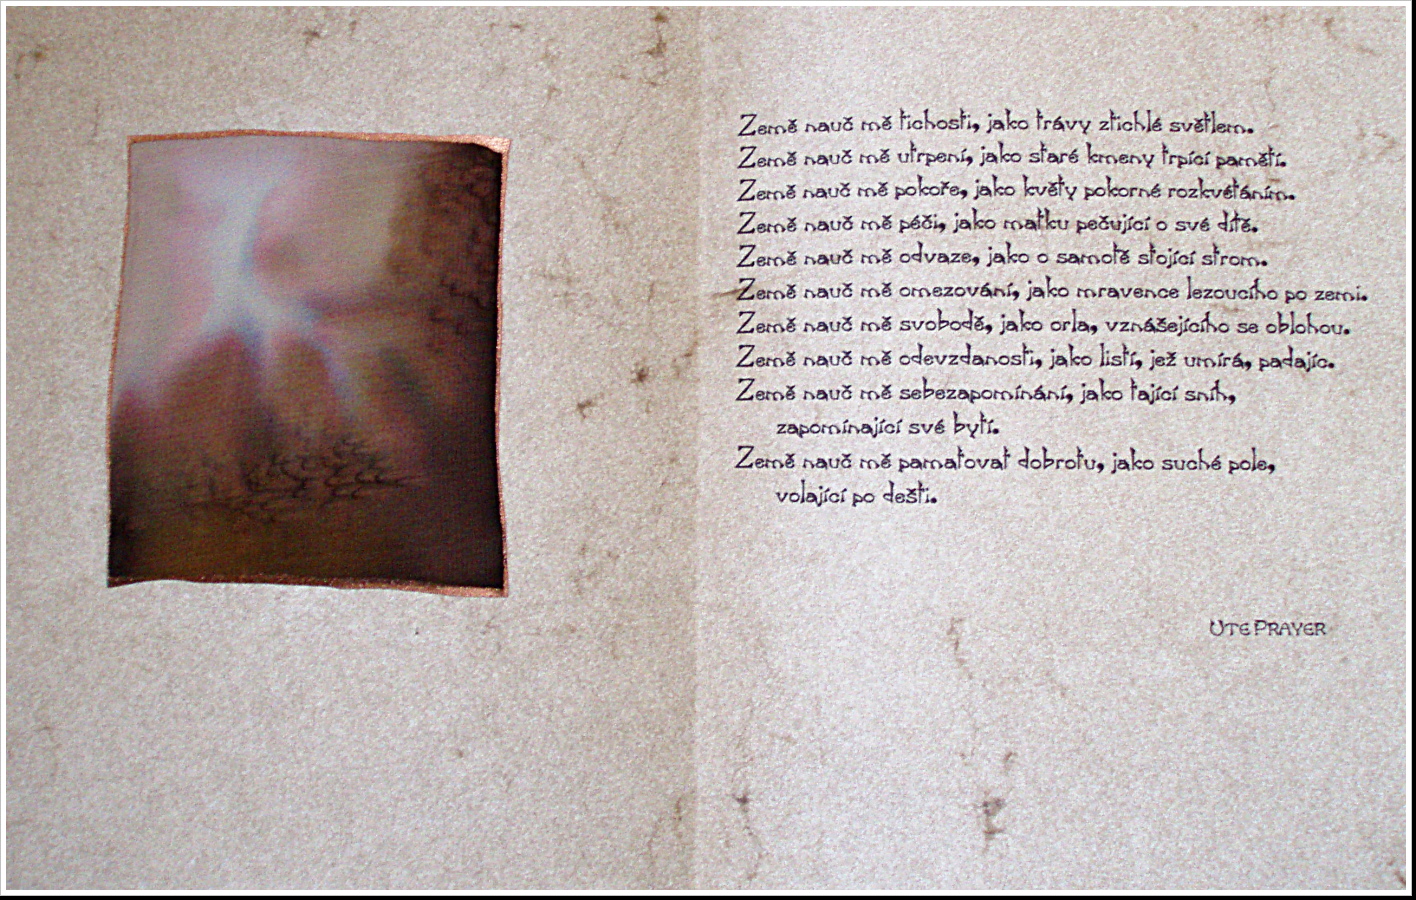 Země nauč mě tichosti, jako trávy ztichlé světlem.
Země nauč mě utrpení, jako staré kmeny trpící pamětí.
Země nauč mě pokoře, jako květy pokorné rozkvétáním.
Země nauč mě péči, jako matku pečující o své dítě.
Země nauč mě odvaze, jako o samotě stojící strom.
Země nauč mě omezování, jako mravence lezoucího po zemi.
Země nauč mě svobodě, jako orla, vznášejícího se oblohou.
Země nauč mě odevzdanosti, jako listí, jež umírá, padajíc.
Země nauč mě sebezapomínání, jako tající sníh,
zapomínající své bytí.
Země nauč mě pamatovat dobrotu, jako suché pole,
volající po dešti.
UTE PRAYER